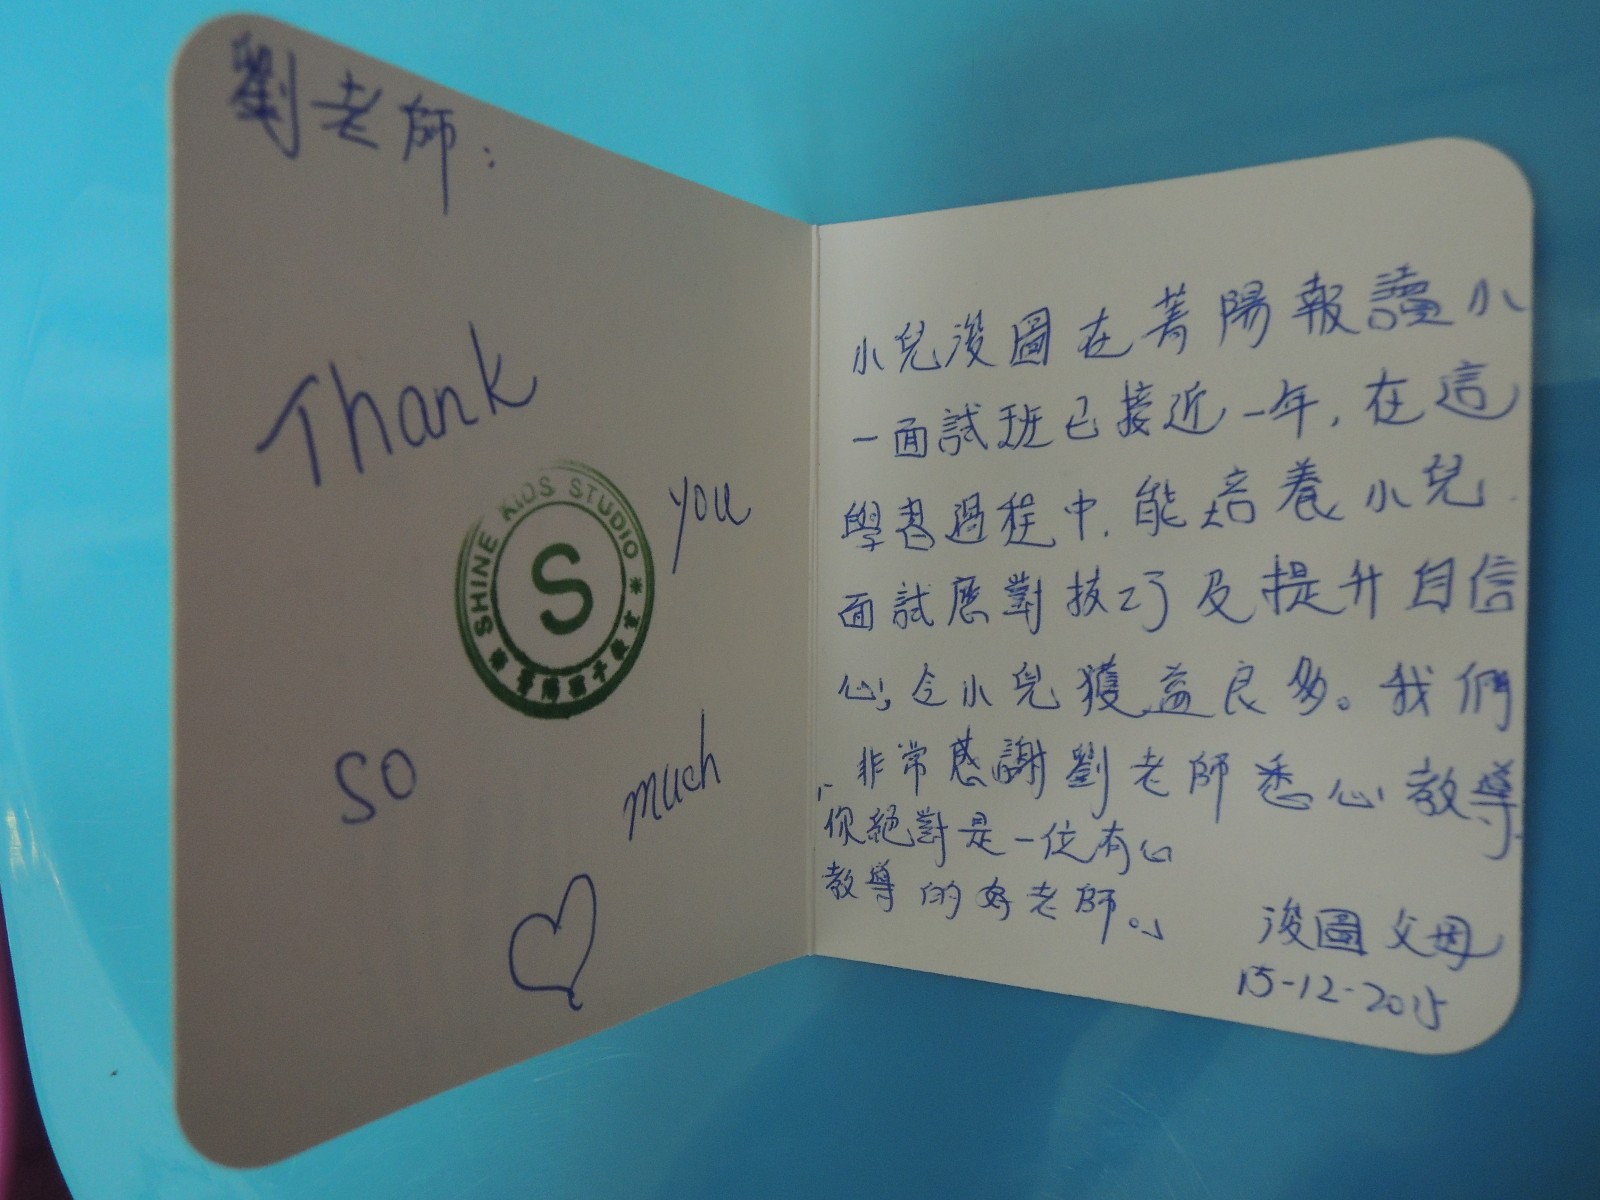 劉老師：
Thank
you
SHINE KIDS STUDIO
S
so
much
小兒浚圖在菁陽報讀小
一面試班已接近一年，在這
學習過程中，能培養小兒
面試應對技巧及提升自信
心，令小兒獲益良多。我們
非常感謝劉老師悉心教導，
你絕對是一位有心
教導的好老師。
浚圖父母
15-12-2015